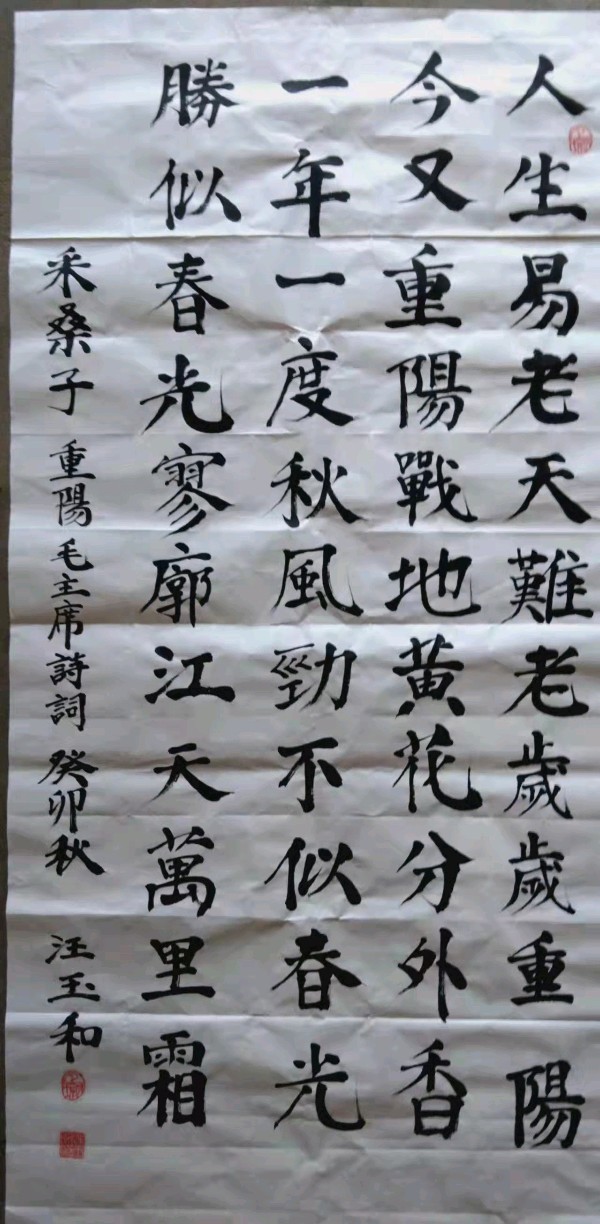 人生易老天難老歲歲重陽
今又重陽戰地黃花分外香
一年一度秋風勁不似春光
勝似春光寥廓江天萬里霜
采桑子 重陽 毛主席詩詞 癸卯秋 汪玉和